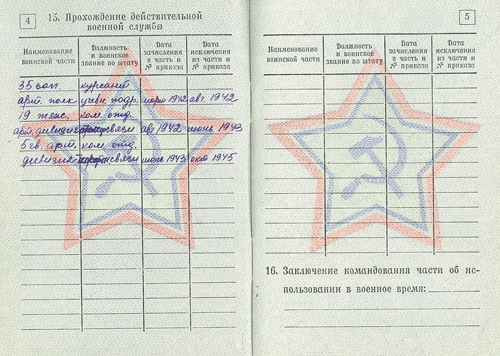 4
15. Прохождение действительной
военной службы
Наименование воинской части
Должность и воинское звание по штату
Дата зачисления в часть и № приказа
Дата исключения из части и № приказа
35 зап. курсант
арт. полк учебн. подр. март 1942 авг. 1942
19 ком. отд.
арт. дивизион связи авг 1942 июнь 1943
5 гв. арт. ком. отд.
дивизия связи июнь 1943 окт 1945
5
Наименование воинской части
Должность и воинское звание по штату
Дата зачисления в часть и № приказа
Дата исключения из части и № приказа
16. Заключение командования части об ис-
пользовании в военное время: